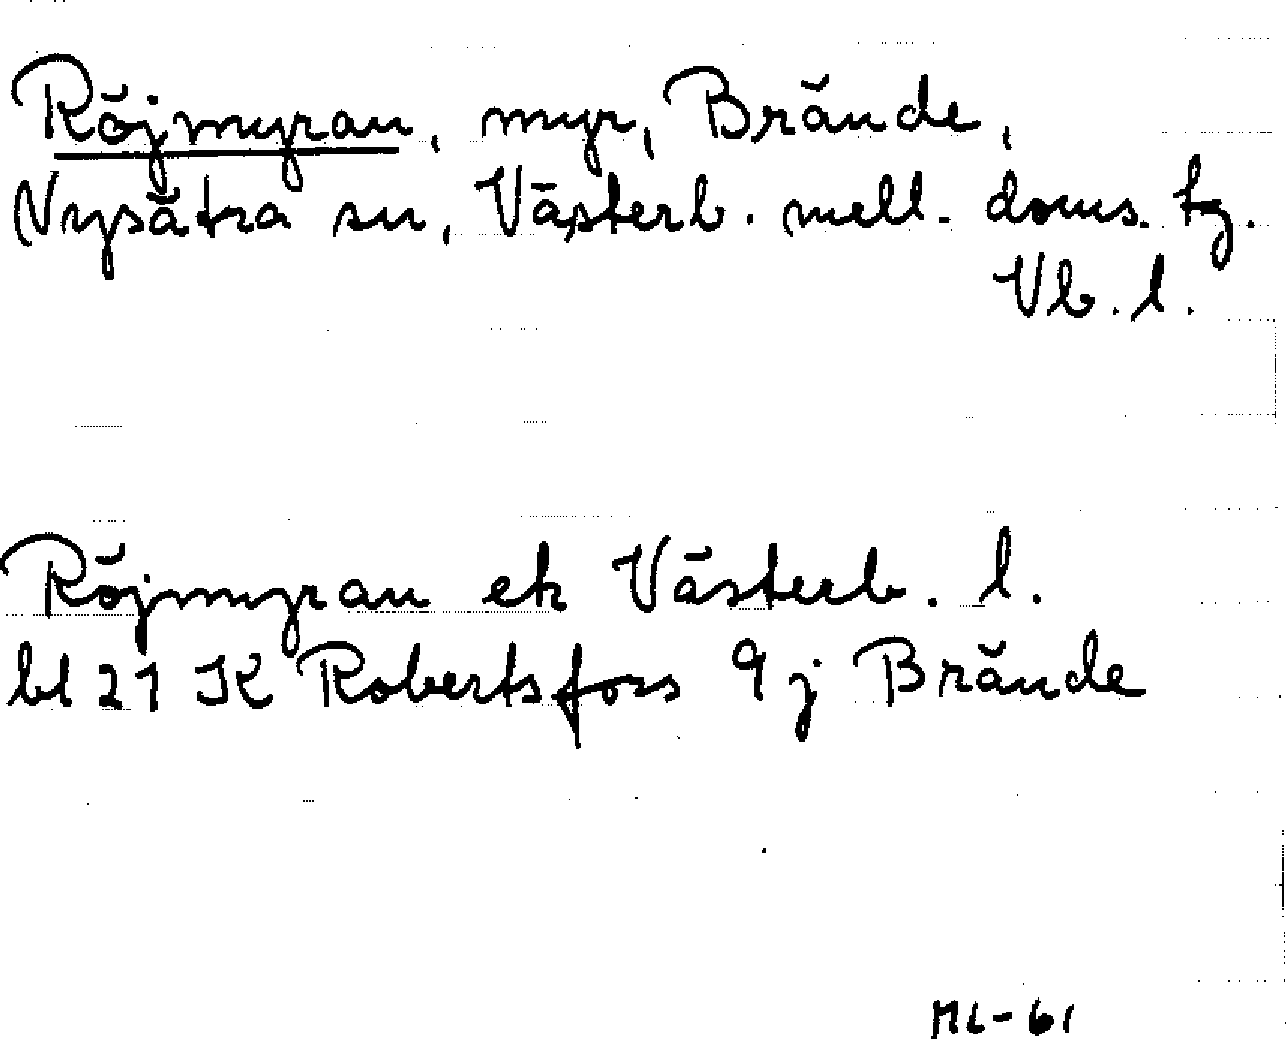 Röjmyran, myr, Brände,
Nysätra sn, Västerb. mell. doms. tg.
Vb. l.
Röjmyran ek Västerb. l.
bl 21 K Robertsfors 9 j Brände
ML-61